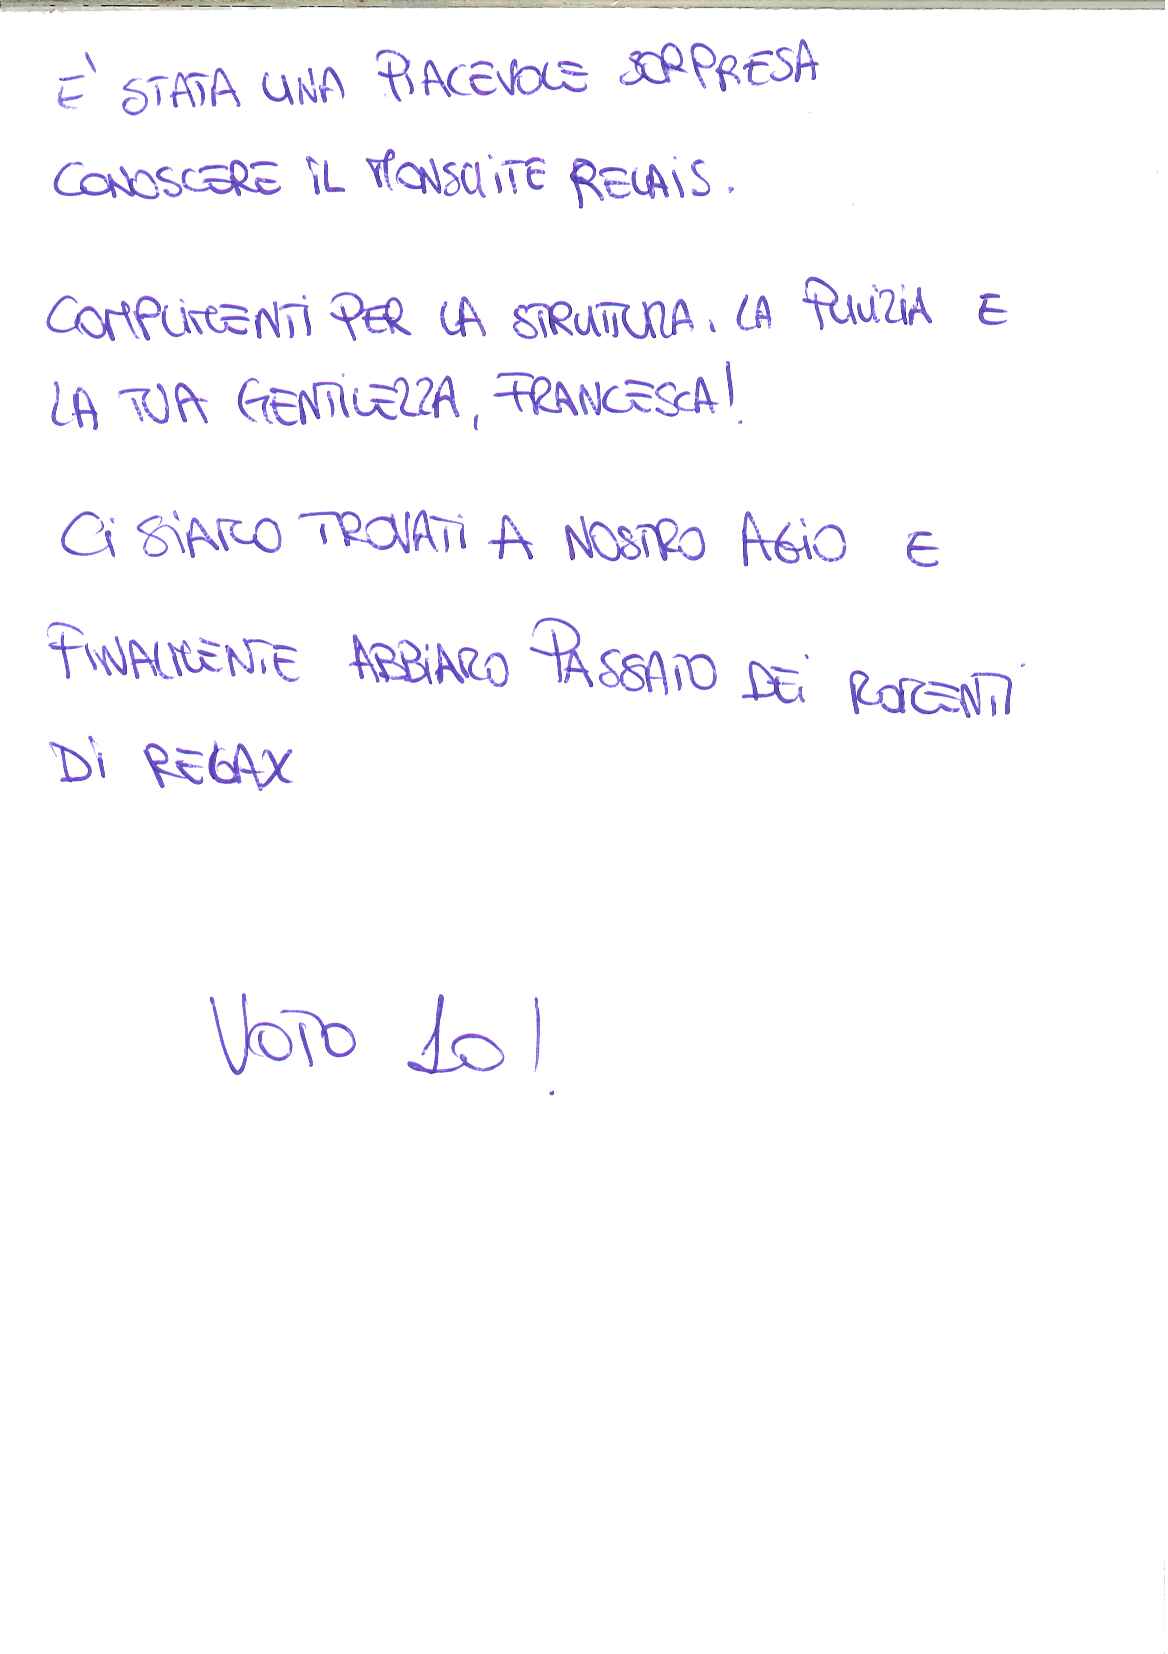 E' STATA UNA PIACEVOLE SORPRESA
CONOSCERE IL MONSUITE RELAIS.
COMPLIMENTI PER LA STRUTTURA, LA PULIZIA E
LA TUA GENTILEZZA, FRANCESCA!
CI SIAMO TROVATI A NOSTRO AGIO E
FINALMENTE ABBIAMO PASSATO DEI MOMENTI
DI RELAX
VOTO 10!